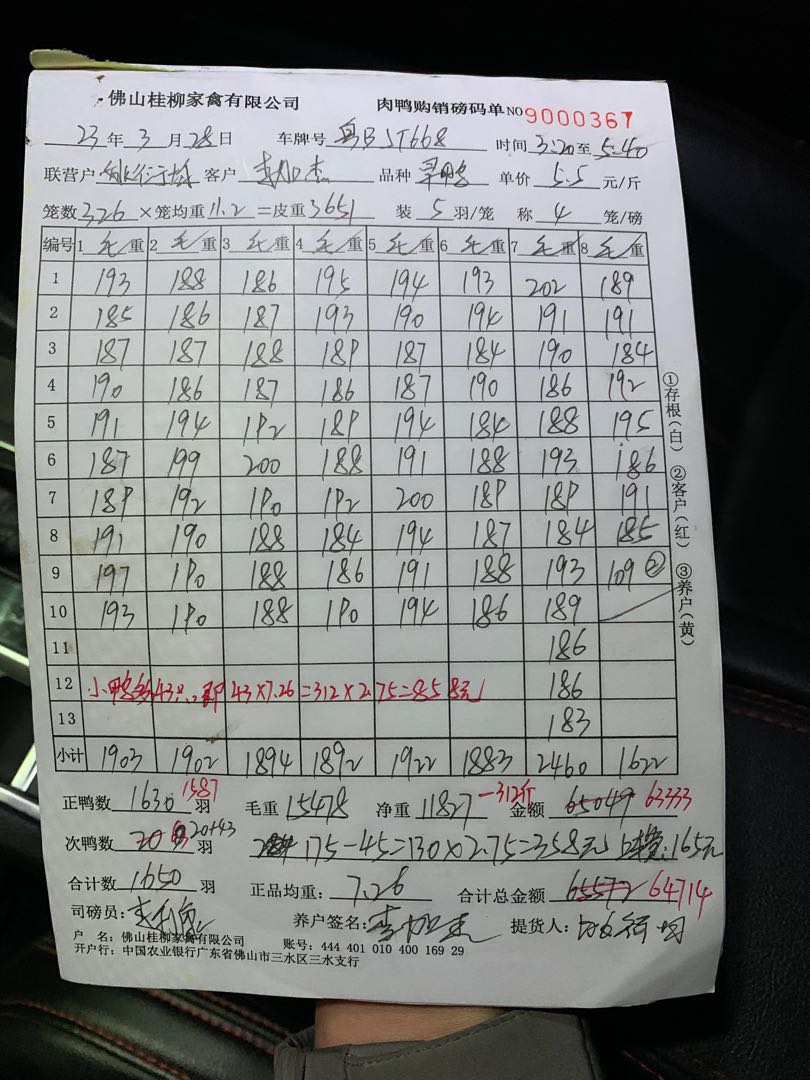 佛山桂柳家禽有限公司 肉鸭购销磅码单 NO 9000367
23年3月28日 车牌号 粤B JT668 时间 3:20至5:40
联营户 客户 李加杰 品种 单价 5.5 元/斤
笼数326×笼均重11.2=皮重3651 装5羽/笼 称4笼/磅
编号 1毛重 2毛重 3毛重 4毛重 5毛重 6毛重 7毛重 8毛重
1 193 188 186 195 194 193 202 189
2 185 186 187 193 190 194 191 191
3 187 187 188 189 187 184 190 184
4 190 186 187 186 187 190 186 192
5 191 194 192 189 194 184 188 195
6 187 199 200 188 191 188 193 186
7 189 192 190 192 200 189 189 191
8 191 190 188 184 194 187 184 185
9 197 190 188 186 191 188 193 109②
10 193 190 188 190 194 186 189
11 186
12 小鸭多43只 43×7.26=312×2.75=858元 186
13 183
小计 1903 1902 1894 1892 1922 1883 2460 1622
正鸭数 1630 1587 羽 毛重 15478 净重 11827 -312斤 金额 65049 63333
次鸭数 20 20+43 羽 175-45=130×2.75=358元 165元
合计数 1650 羽 正品均重: 7.26 合计总金额 65572 64714
司磅员: 养户签名: 李加杰 提货人:
户 名: 佛山桂柳家禽有限公司 账号: 444 401 010 400 169 29
开户行: 中国农业银行广东省佛山市三水区三水支行
①存根(白) ②客户(红) ③养户(黄)